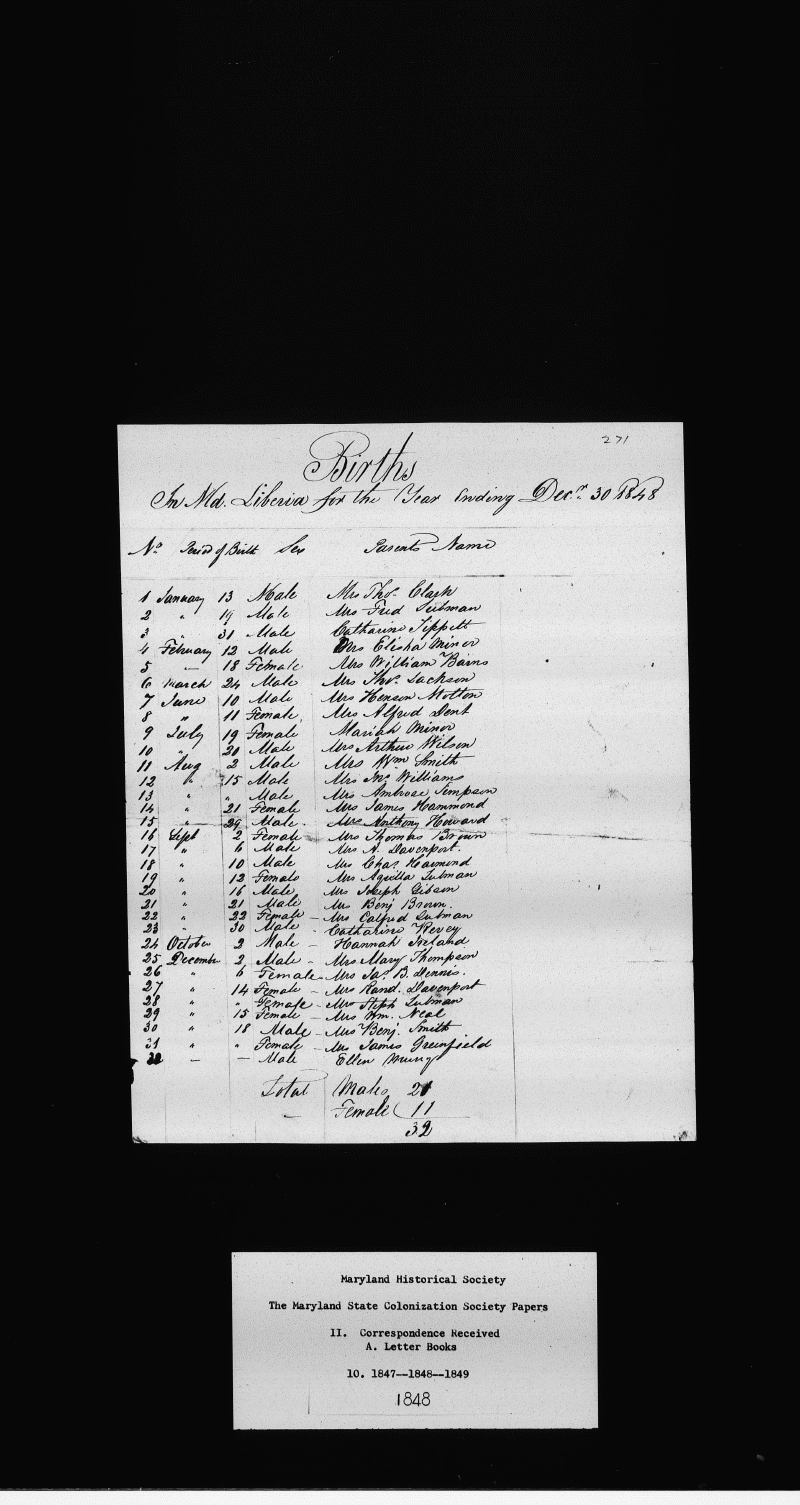 271
Births
In Md. Liberia for the Year Ending Decr. 30 1848
No. Period of Birth Sex Parents Name
1 January 13 Male Mrs Thos. Clark
2 " 19 Male Mrs Fred Tubman
3 " 31 Male Catharine Tippett
4 February 12 Male Mrs Elisha Minor
5 — 18 Female Mrs William Bains
6 March 24 Male Mrs Thos. Jackson
7 June 10 Male Mrs Henson Molton
8 " 11 Female Mrs Alfred Dent
9 July 19 Female Mariah Minor
10 " 20 Male Mrs Arthur Wilson
11 Aug 2 Male Mrs Wm Smith
12 " 15 Male Mrs Jno Williams
13 " " Male Mrs Ambrose Simpson
14 " 21 Female Mrs James Hammond
15 " 29 Male Mrs Anthony Howard
16 Sept 2 Female Mrs Thomas Brown
17 " 6 Male Mrs A. Davenport.
18 " 10 Male Mrs Chas. Hammond
19 " 12 Female Mrs Aquilla Tubman
20 " 16 Male Mrs Joseph Gibson
21 " 21 Male Mrs Benj Brown.
22 " 22 Female – Mrs Calfred Tubman
23 " 30 Male - Catharine Revey
24 October 2 Male – Hannah Ireland
25 December 2 Male – Mrs Mary Thompson
26 " 6 Female – Mrs Jas. B. Dennis.
27 " 14 Female – Mrs Rand. Davenport
28 " " Female – Mrs Steph Tubman
29 " 15 Female – Mrs Wm. Neal
30 " 18 Male – Mrs Benj. Smith
31 " " Female – Mrs James Greenfield
32 — — Male Ellen
Total Males 21
— Female 11
32
Maryland Historical Society
The Maryland State Colonization Society Papers
II. Correspondence Received
A. Letter Books
10. 1847--1848--1849
1848